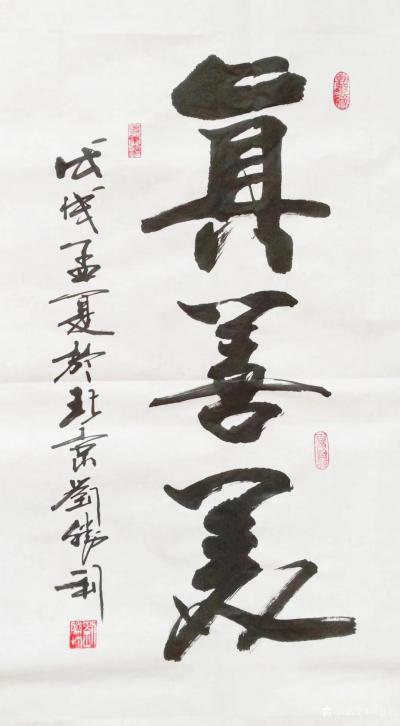 真善美
戊戌孟夏於北京劉勝利